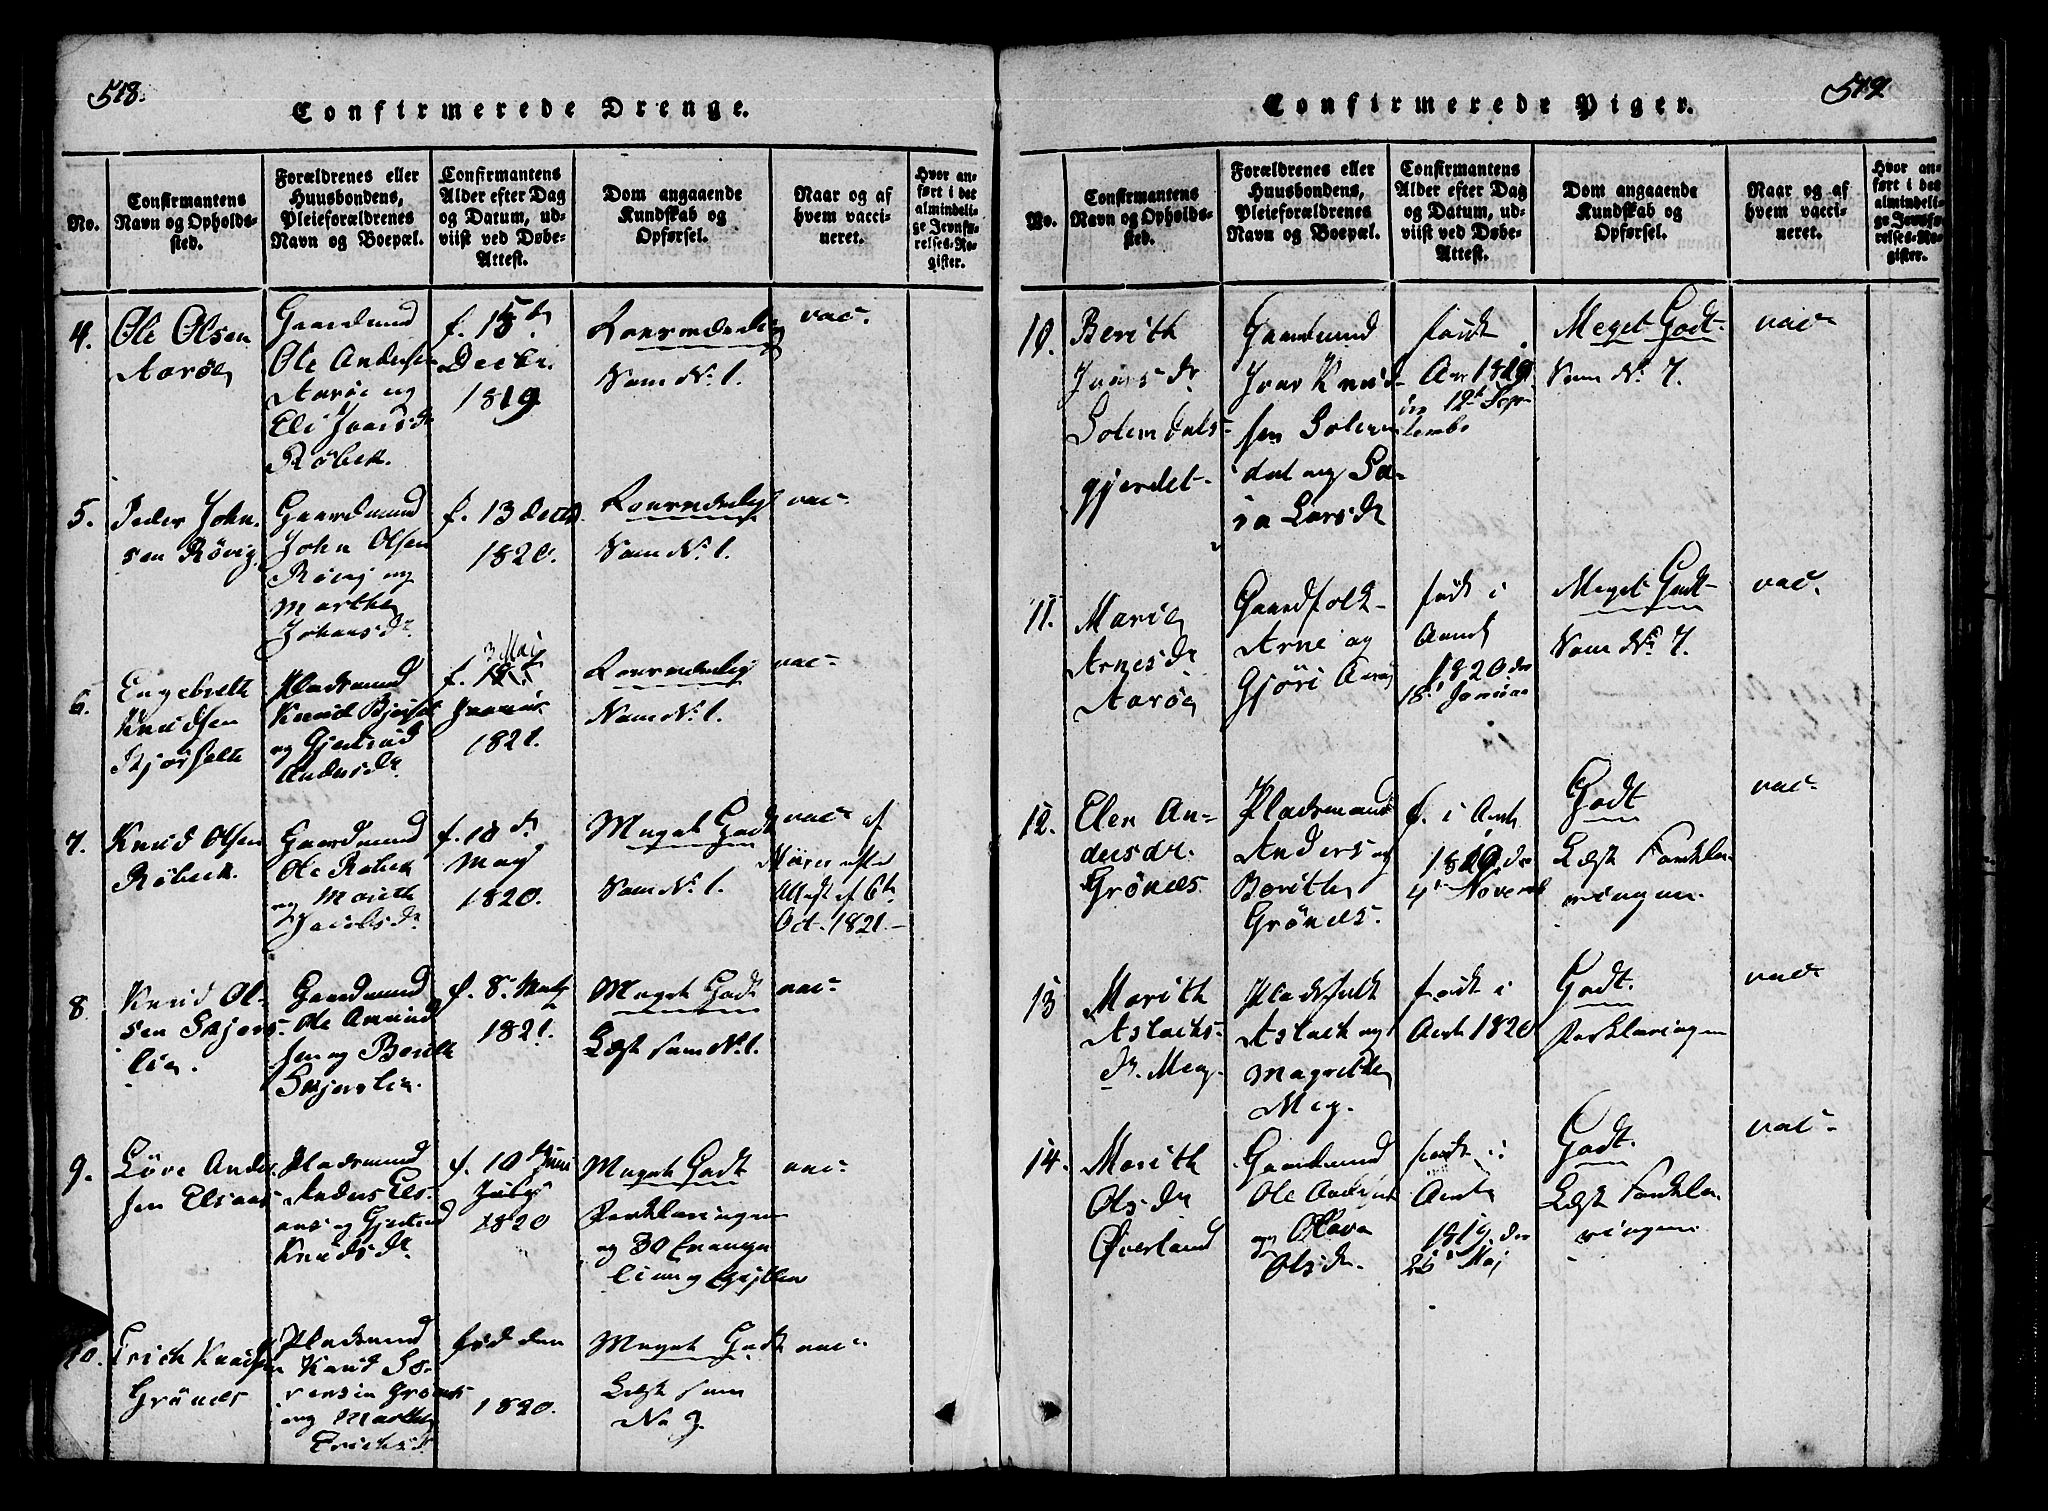 518.
Confirmerede Drenge.
No.
Confirmantens
Navn og Opholds-
sted.
Forældrenes eller
Huusbondens,
Pleieforældrenes
Navn og Boepæl.
Confirmantens
Alder efter Dag
og Datum, ud-
viist ved Døbe-
Attest.
Dom angaaende
Kundskab og
Opførsel.
Naar og af
hvem vacci-
neret.
Hvor an-
ført i det
almindeli-
ge Jevnfø-
relses-Re-
gister.
4.
Ole Olsen
Aarøe
Gaardmand
Ole Andersen
Aarøe og
Eli Ivarsdr
Røbek.
f. 15de
Decbr.
1819
Som No. 1.
vac-
5.
Peder John-
sen Røvig
Gaardmand
John Olsen
Røvig og
Marthe
Johansdr
f. 13 Decbr
1820.
Som No. 1.
vac-
6.
Engebreth
Knudsen
Bjørseth
Pladsmand
Knud Bjørset
og Gjertrud
Andersdr
3 Maj
f.
Januar
1821.
Som No. 1.
vac-
7.
Knud Olsen
Røbek.
Gaardmand
Ole Røbek
og Marith
Jacobsdr
f. 10de
May
1820.
Meget Godt
Som No. 1.
vac- af
Attest af 6te
Oct. 1821.-
8.
Knud Ol-
sen Skjors-
lien.
Gaardmand
Ole Amund
sen og Berith
Skjorslien.
f. 8. May
1821.
Meget Godt
Læst som No. 1.
vac-
9.
Løve Ander
sen Elsaas
Pladsmand
Anders Els-
aas og Gjertrud
Knudsdr
f. 10de Juni
July
1820
Meget Godt
Forklaringen
og 30 Evange
lier og Epistler
vac-
10.
Erich Knudsen
Grønnes
Pladsmand
Knud Sø-
rensen Grønnes
og Marthe
Erichsdr
fød den
1820.
Meget Godt
Læst som
No 9.
vac-
519
Confirmerede Piger.
No.
Confirmantens
Navn og Opholds-
sted.
Forældrenes eller
Huusbondens,
Pleieforældrenes
Navn og Boepæl.
Confirmantens
Alder efter Dag
og Datum, ud-
viist ved Døbe-
Attest.
Dom angaaende
Kundskab og
Opførsel.
Naar og af
hvem vacci-
neret.
Hvor an-
ført i det
almindeli-
ge Jevnfø-
relses-Re-
gister.
10.
Berith
Ivarsdr
Solemdals-
gjerdet-
Gaardmand
Ivar Knud-
sen Solem-
dal og Sa-
ra Larsdr
født
Aar 1819
den 12te Sep-
tember
Meget Godt-
Som No. 7.
vac-
11.
Marie
Arnesdr
Aarøe
Gaardfolk-
Arne og
Gjøri Aarøe
født i
Aaret
1820 den
18de Januar
Meget Godt-
Som No. 7.
vac-
12.
Elen An-
dersdr.
Grønnes.
Pladsmand
Anders og
Berithe
Grønnes.
f. i Aaret
1819 den
4de November
Godt
Læst Forkla-
ringen.
vac-
13
Marith
Aslachs-
dr. Meg.
Pladsfolk
Aslach og
Magrethe
Meg.
født i
Aaret 1820
Godt.
Forklaringen
vac-
14.
Marith
Olsdr
Øverland
Gaardmand
Ole Anders
og Olava
Olsdr.
født i
Aaret
1819. den
26de Maj
Godt.
Læst Forkla-
ringen
vac-